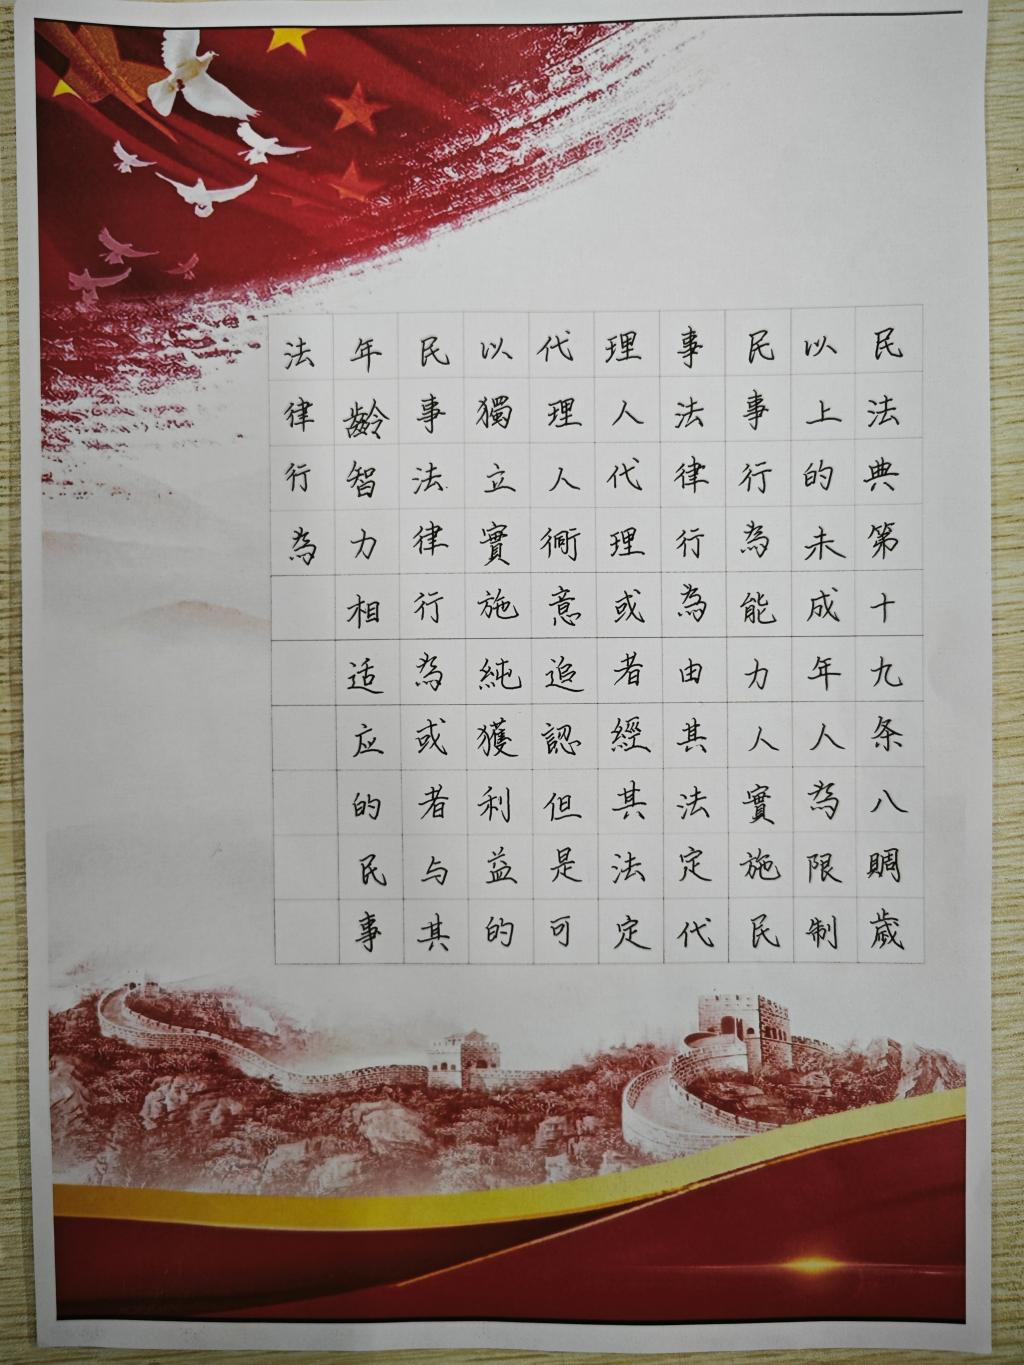 民法典第十九条八賙歲
以上的未成年人為限制
民事行為能力人實施民
事法律行為由其法定代
理人代理或者經其法定
代理人衕意追認但是可
以獨立實施純獲利益的
民事法律行為或者与其
年齡智力相适应的民事
法律行為